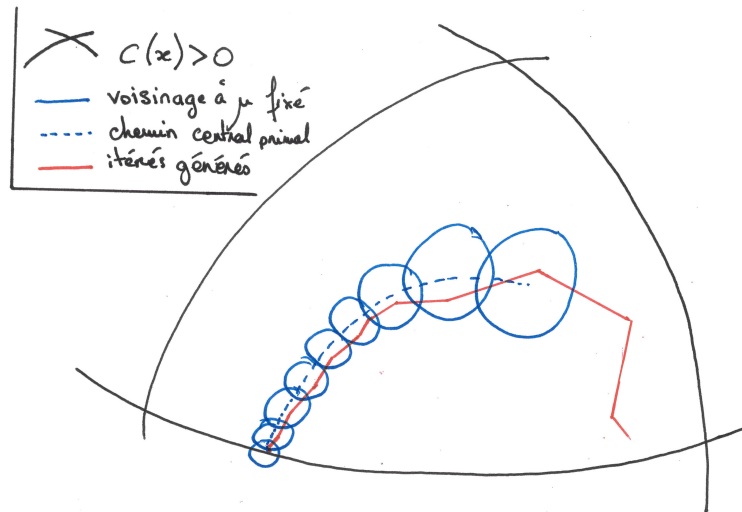 C(x)>0
voisinage à μ fixé
chemin central primal
itérés générés